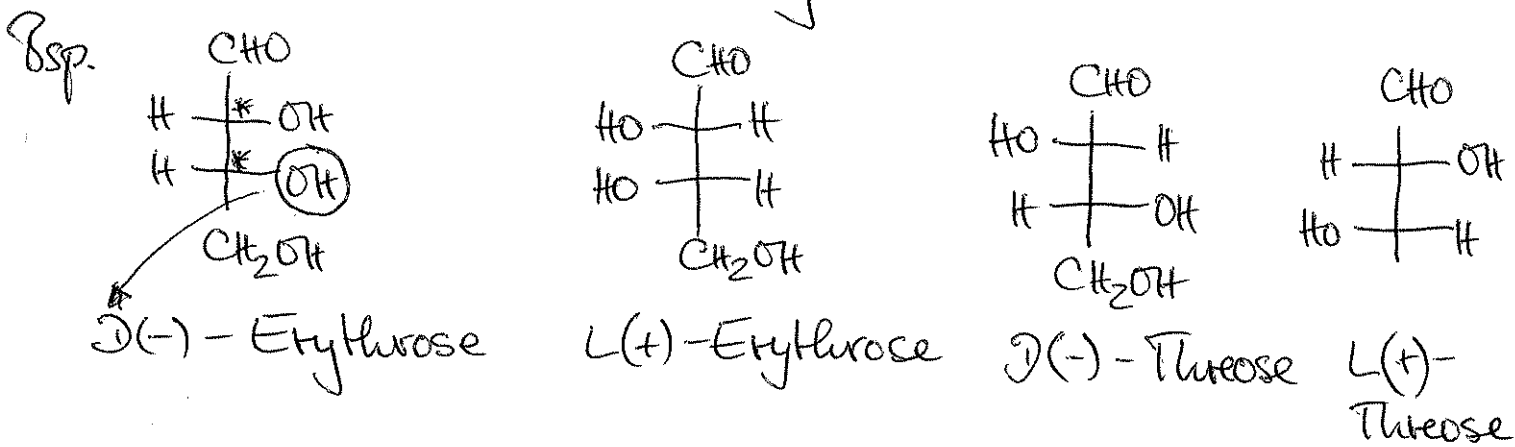 Bsp.
CHO
H * OH
H * OH
CH2OH
D(-) - Erythrose
CHO
HO H
HO H
CH2OH
L(+) - Erythrose
CHO
HO H
H OH
CH2OH
D(-) - Threose
CHO
H OH
HO H
L(+) -
Threose